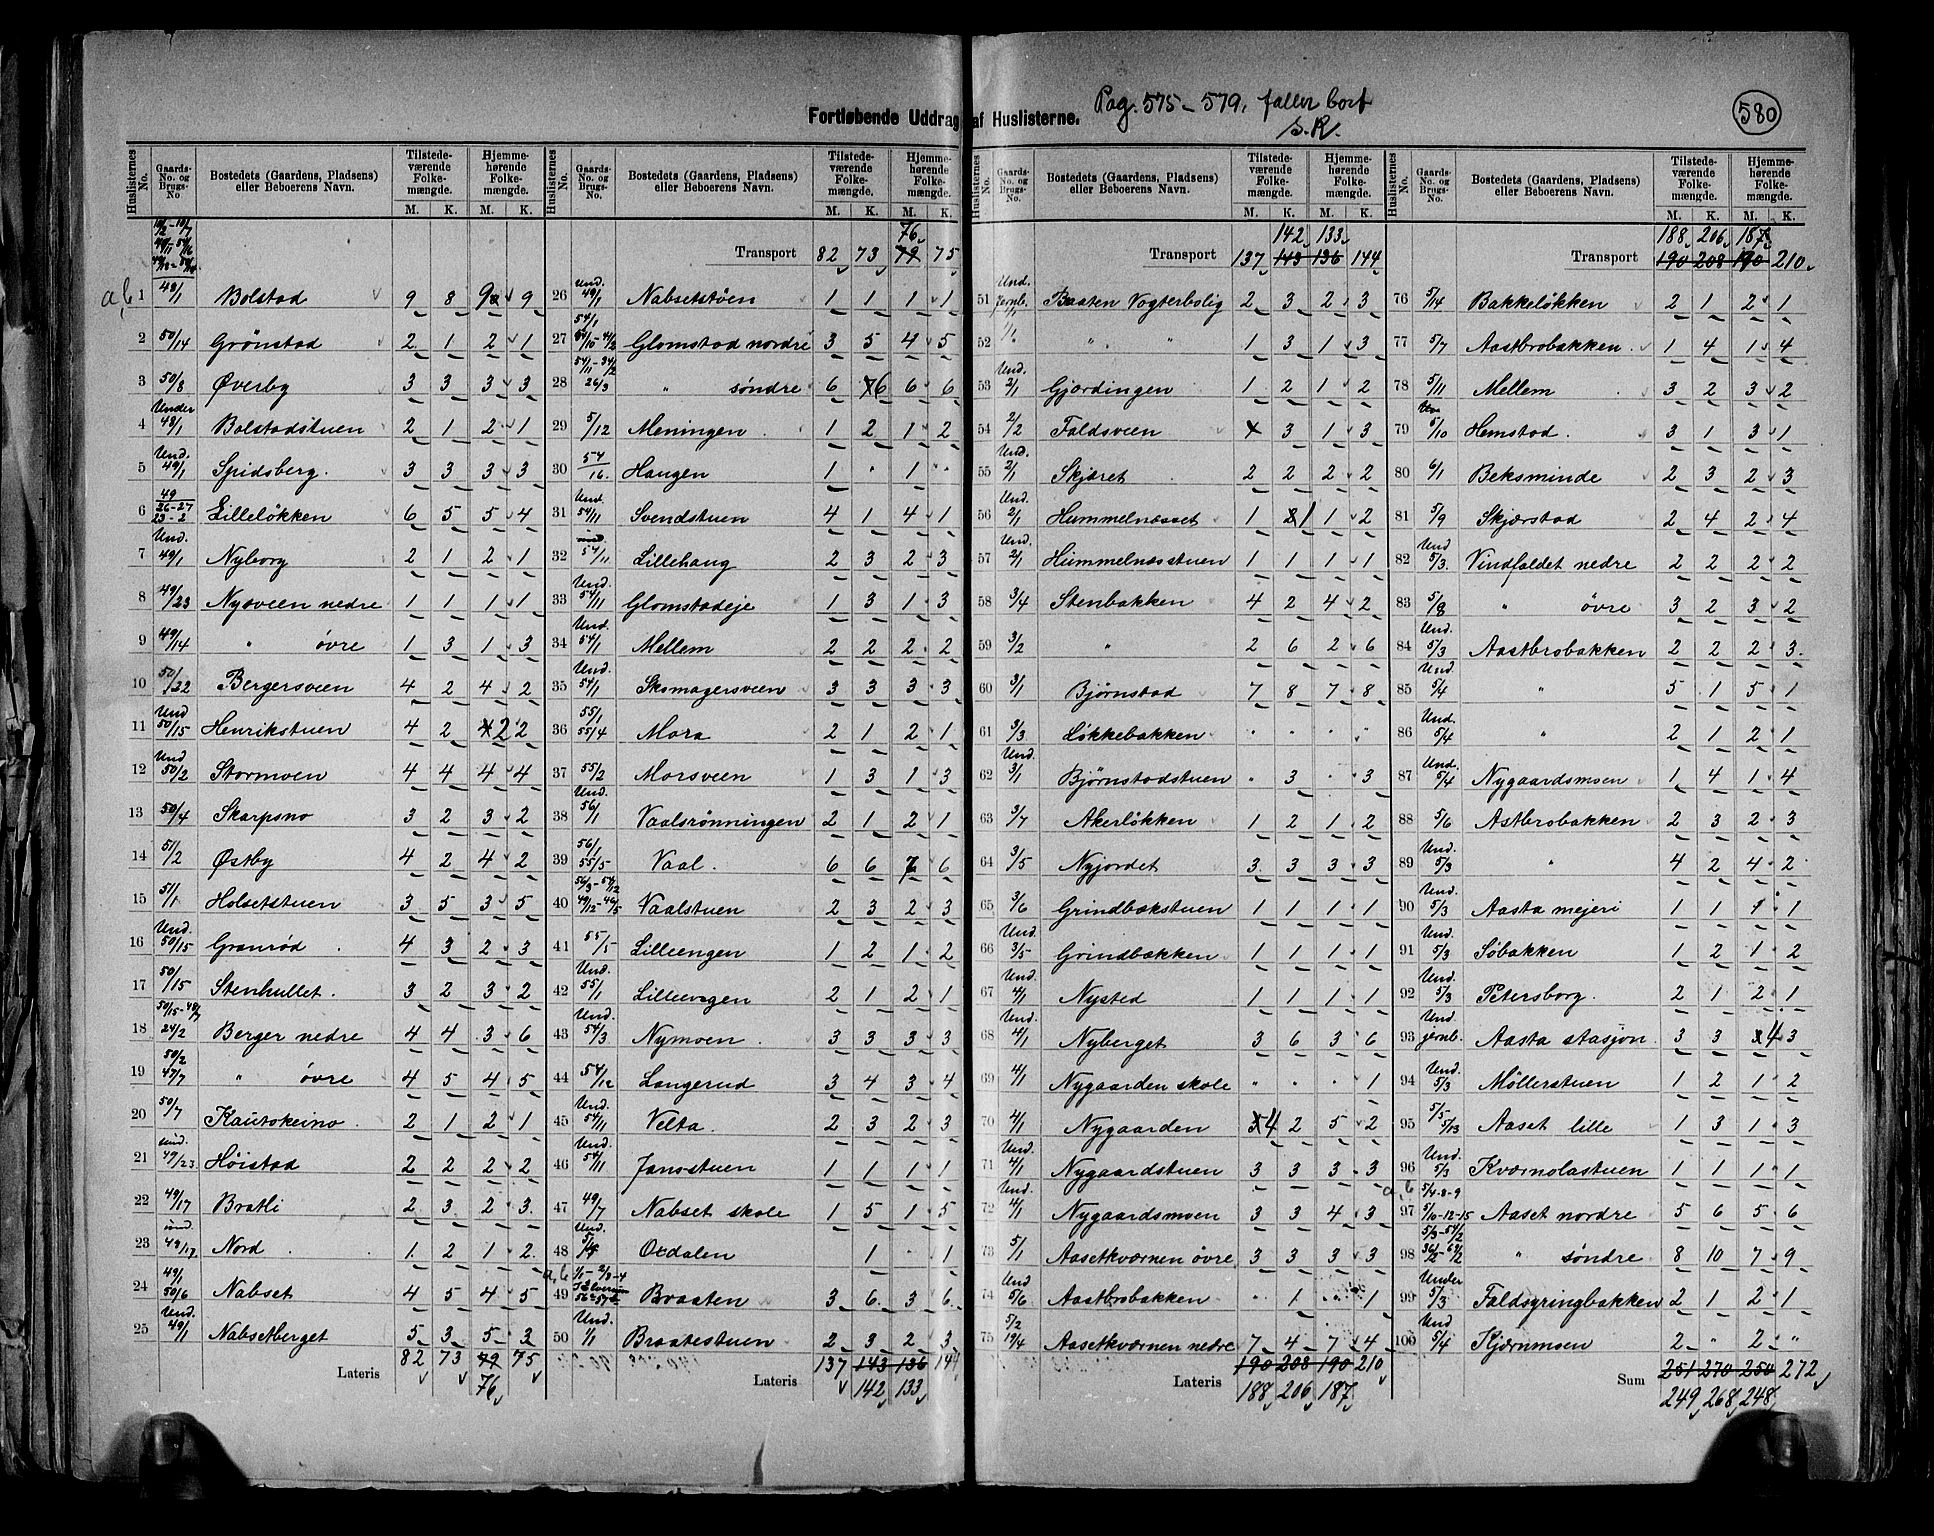 Pag. 575 - 579, faller bort
s.K.
580
Fortløbende Uddrag af Huslisterne.
Huslisternes No. | Gaards-No. og Brugs-No | Bostedets (Gaardens, Pladsens) eller Beboerens Navn. | Tilstedeværende Folkemængde. M. K. | Hjemmehørende Folkemængde. M. K.
a,b 1 48/1 Bolstad 9 8 9 9
2 50/14 Grønstad 2 1 2 1
3 50/8 Øverby 3 3 3 3
4 Under 48/1 Bolstadstuen 2 1 2 1
5 Und. 49/1 Spidsberg. 3 3 3 3
6 49/26-27 23-2 Lilleløkken 6 5 5 4
7 Und. 49/1 Nyborg 2 1 2 1
8 49/23 Nysveen nedre 1 1 1 1
9 49/14 " øvre 1 3 1 3
10 50/32 Bergersveen 4 2 4 2
11 Und 50/15 Henrikstuen 4 2 2 2
12 Und 50/2 Stormoen 4 4 4 4
13 50/4 Skarpsno 3 2 3 2
14 51/2 Østby 4 2 4 2
15 51/1 Holsetstuen 3 5 3 5
16 Und. 50/15 Granrød 4 3 2 3
17 50/15 Stenhullet. 3 2 3 2
18 50/15-48/7 24/2 Berger nedre 4 4 3 6
19 50/2 47/7 " øvre 4 5 4 5
20 50/7 Kautokeino 2 1 2 1
21 und. 49/23 Høistad 2 2 2 2
22 49/17 Bratli 2 3 2 3
23 und. 49/17 Nord 1 2 1 2
24 49/1 50/6 Nabset 4 5 4 5
25 Und. 49/1 Nabsetberget 5 3 5 3
Lateris 82 73 79 75
76
76
Transport 82 73 79 75
26 Und. 49/1 Nabsetstøen 1 1 1 1
27 54/1 Glomstad nordre 3 5 4 5
28 26/3 " søndre 6 6 6 6
29 5/12 Meningen 1 2 1 2
30 54/16. Haugen 1 " 1 "
31 Und. 54/11 Svendstuen 4 1 4 1
32 und. 54/11 Lillehaug 2 3 2 3
33 Und. 54/11 Glomstadeje 1 3 1 3
34 Und. 54/1 Mellem 2 2 2 2
35 Und. 54/1 Skomagersveen 3 3 3 3
36 55/1 55/4 Mora 2 1 2 1
37 55/2 Morsveen 1 3 1 3
38 Und. 56/1 Vaalsrønningen 2 1 2 1
39 56/1 55/5 Vaal. 6 6 7 6
40 56/3-54/12 49/12-46/5 Vaalstuen 2 3 2 3
41 55/5 Lilleengen 1 2 1 2
42 Und. 55/1 Lilleengen 2 1 2 1
43 Und. 54/3 Nymoen 3 3 3 3
44 54/12 Langerud 3 4 3 4
45 Und. 54/1 Velta 2 3 2 3
46 Und. 54/11 Jansstuen 1 1 1 1
47 49/7 Nabset skole 1 5 1 5
48 Und. Oxdalen 1 " 1
a,b 49 1/1 - 2/3-4 Braaten 3 6 3 6
50 Und. 1/1 Braatestuen 2 3 2 3
Lateris 137 143 136 144
142 133
142 133
Transport 137 143 136 144
51 Und. jernb. Braaten Vogterbolig 2 3 2 3
52 " " 1 3 1 3
53 Und. 2/1 Gjørdingen 1 2 1 2
54 2/2 Faldsveen 3 1 3
55 Und. 2/1 Skjæret 2 2 2 2
56 Und. 2/1 Hummelnæsset 1 1 1 2
57 Und. 2/1 Hummelnæsstuen 1 1 1 1
58 3/4 Stenbakken 4 2 4 2
59 3/2 " 2 6 2 6
60 3/1 Bjørnstad 7 8 7 8
61 3/3 Løkkebakken " " " "
62 Und. 3/1 Bjørnstadstuen " 3 " 3
63 3/7 Akerløkken 1 2 1 2
64 3/5 Nyjordet 3 3 3 3
65 3/6 Grindbækstuen 1 1 1 1
66 Und. 3/5 Grindbækken 1 1 1 1
67 Und. 4/1 Nysted 1 1 1 1
68 Und. 4/1 Nyberget 3 6 3 6
69 4/1 Nygaarden skole " " " 1
70 4/1 Nygaarden 4 2 5 2
71 Und. 4/1 Nygaardstuen 3 3 3 3
72 Und. 4/1 Nygaardsmoen 3 3 4 3
73 5/1 Aasetkværnen øvre 3 3 3 3
74 Und 5/6 Aastbrobakken " 1 " 1
75 5/2 19/4 Aasetkværnen nedre 7 4 7 4
Lateris 190 208 190 210
188 206 187
188 206 187
Transport 190 208 190 210
76 5/14 Bakkeløkken 2 1 2 1
77 5/7 Aastbrobakken 1 4 1 4
78 5/11 Mellem 3 2 3 2
79 5/10 Hemstad 3 1 3 1
80 6/1 Beksminde 2 3 2 3
81 5/9 Skjærstad 2 4 2 4
82 Und 5/3. Vindfaldet nedre 2 2 2 2
83 5/8 " øvre 3 2 3 2
84 Und. 5/3 Aastbrobakken 2 2 2 3
85 Und 5/4 " 5 1 5 1
86 Und. 5/4 " 2 1 2 1
87 Und. 5/4 Nygaardsmoen 1 4 1 4
88 5/6 Astbrobakken 2 3 2 3
89 Und. 5/3 " 4 2 4 2
90 Und. 5/3 Aasta mejeri 1 1 1 1
91 Und. 5/3 Søbakken 1 2 1 2
92 Und. 5/3 Petersborg. 2 1 2 1
93 Und jernb. Aasta stasjon 3 3 4 3
94 Und. 5/3 Møllerstuen 1 2 1 2
95 5/5 5/13 Aaset lille 1 3 1 3
96 Und. 5/3 Kværnolastuen 1 1 1 1
a,b 97 5/4-8-9 5/10-12-15 Aaset nordre 5 6 5 6
98 5/3-54/2 36/2-63/2 " søndre 8 10 7 9
99 Under 5/3 Faldsyringbakken 2 1 2 1
100 Und 5/4 Kjærnmoen 2 " 2 "
Sum 251 270 250 272
249 268 248